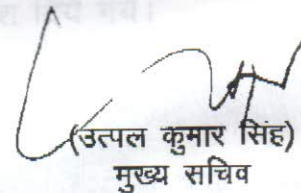 (उत्पल कुमार सिंह)
मुख्य सचिव